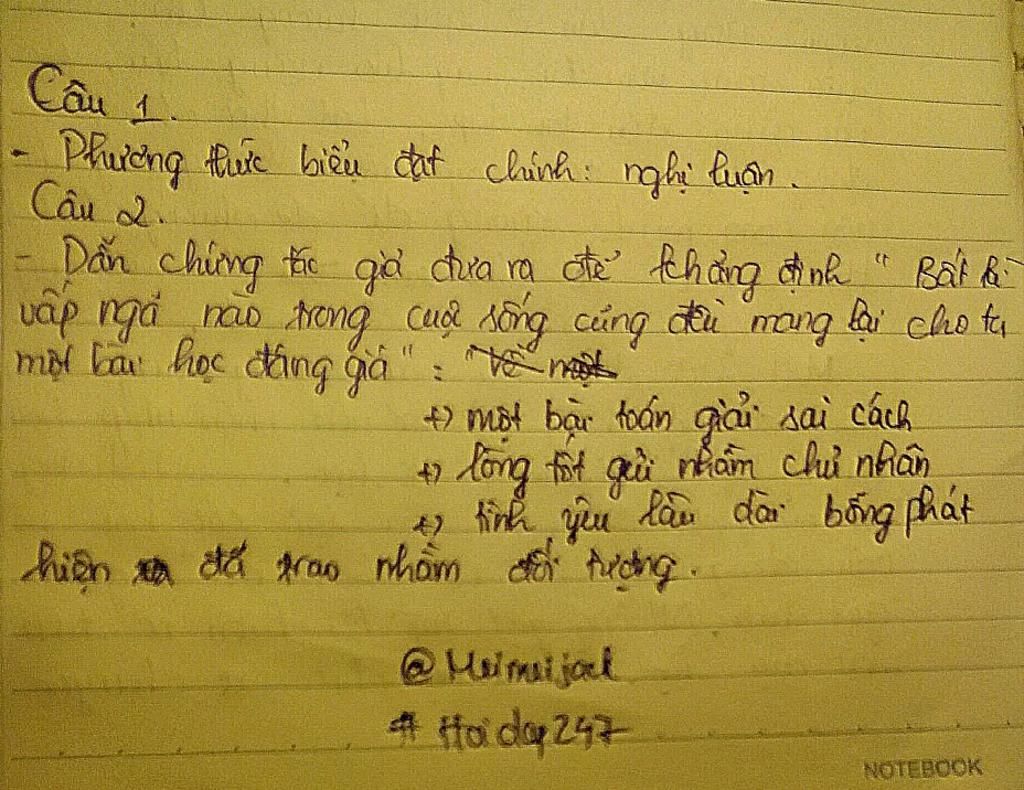 Câu 1.
- Phương thức biểu đạt chính: nghị luận.
Câu 2.
- Dẫn chứng tác giả đưa ra để khẳng định "Bất kì
vấp ngã nào trong cuộc sống cũng đều mang lại cho ta
một bài học đáng giá" :
+) một bài toán giải sai cách
+) lòng tốt gửi nhầm chủ nhân
+) tình yêu lâu dài bỗng phát
hiện đã trao nhầm đối tượng.
@ Meimeijack
# Hoidap247
NOTEBOOK